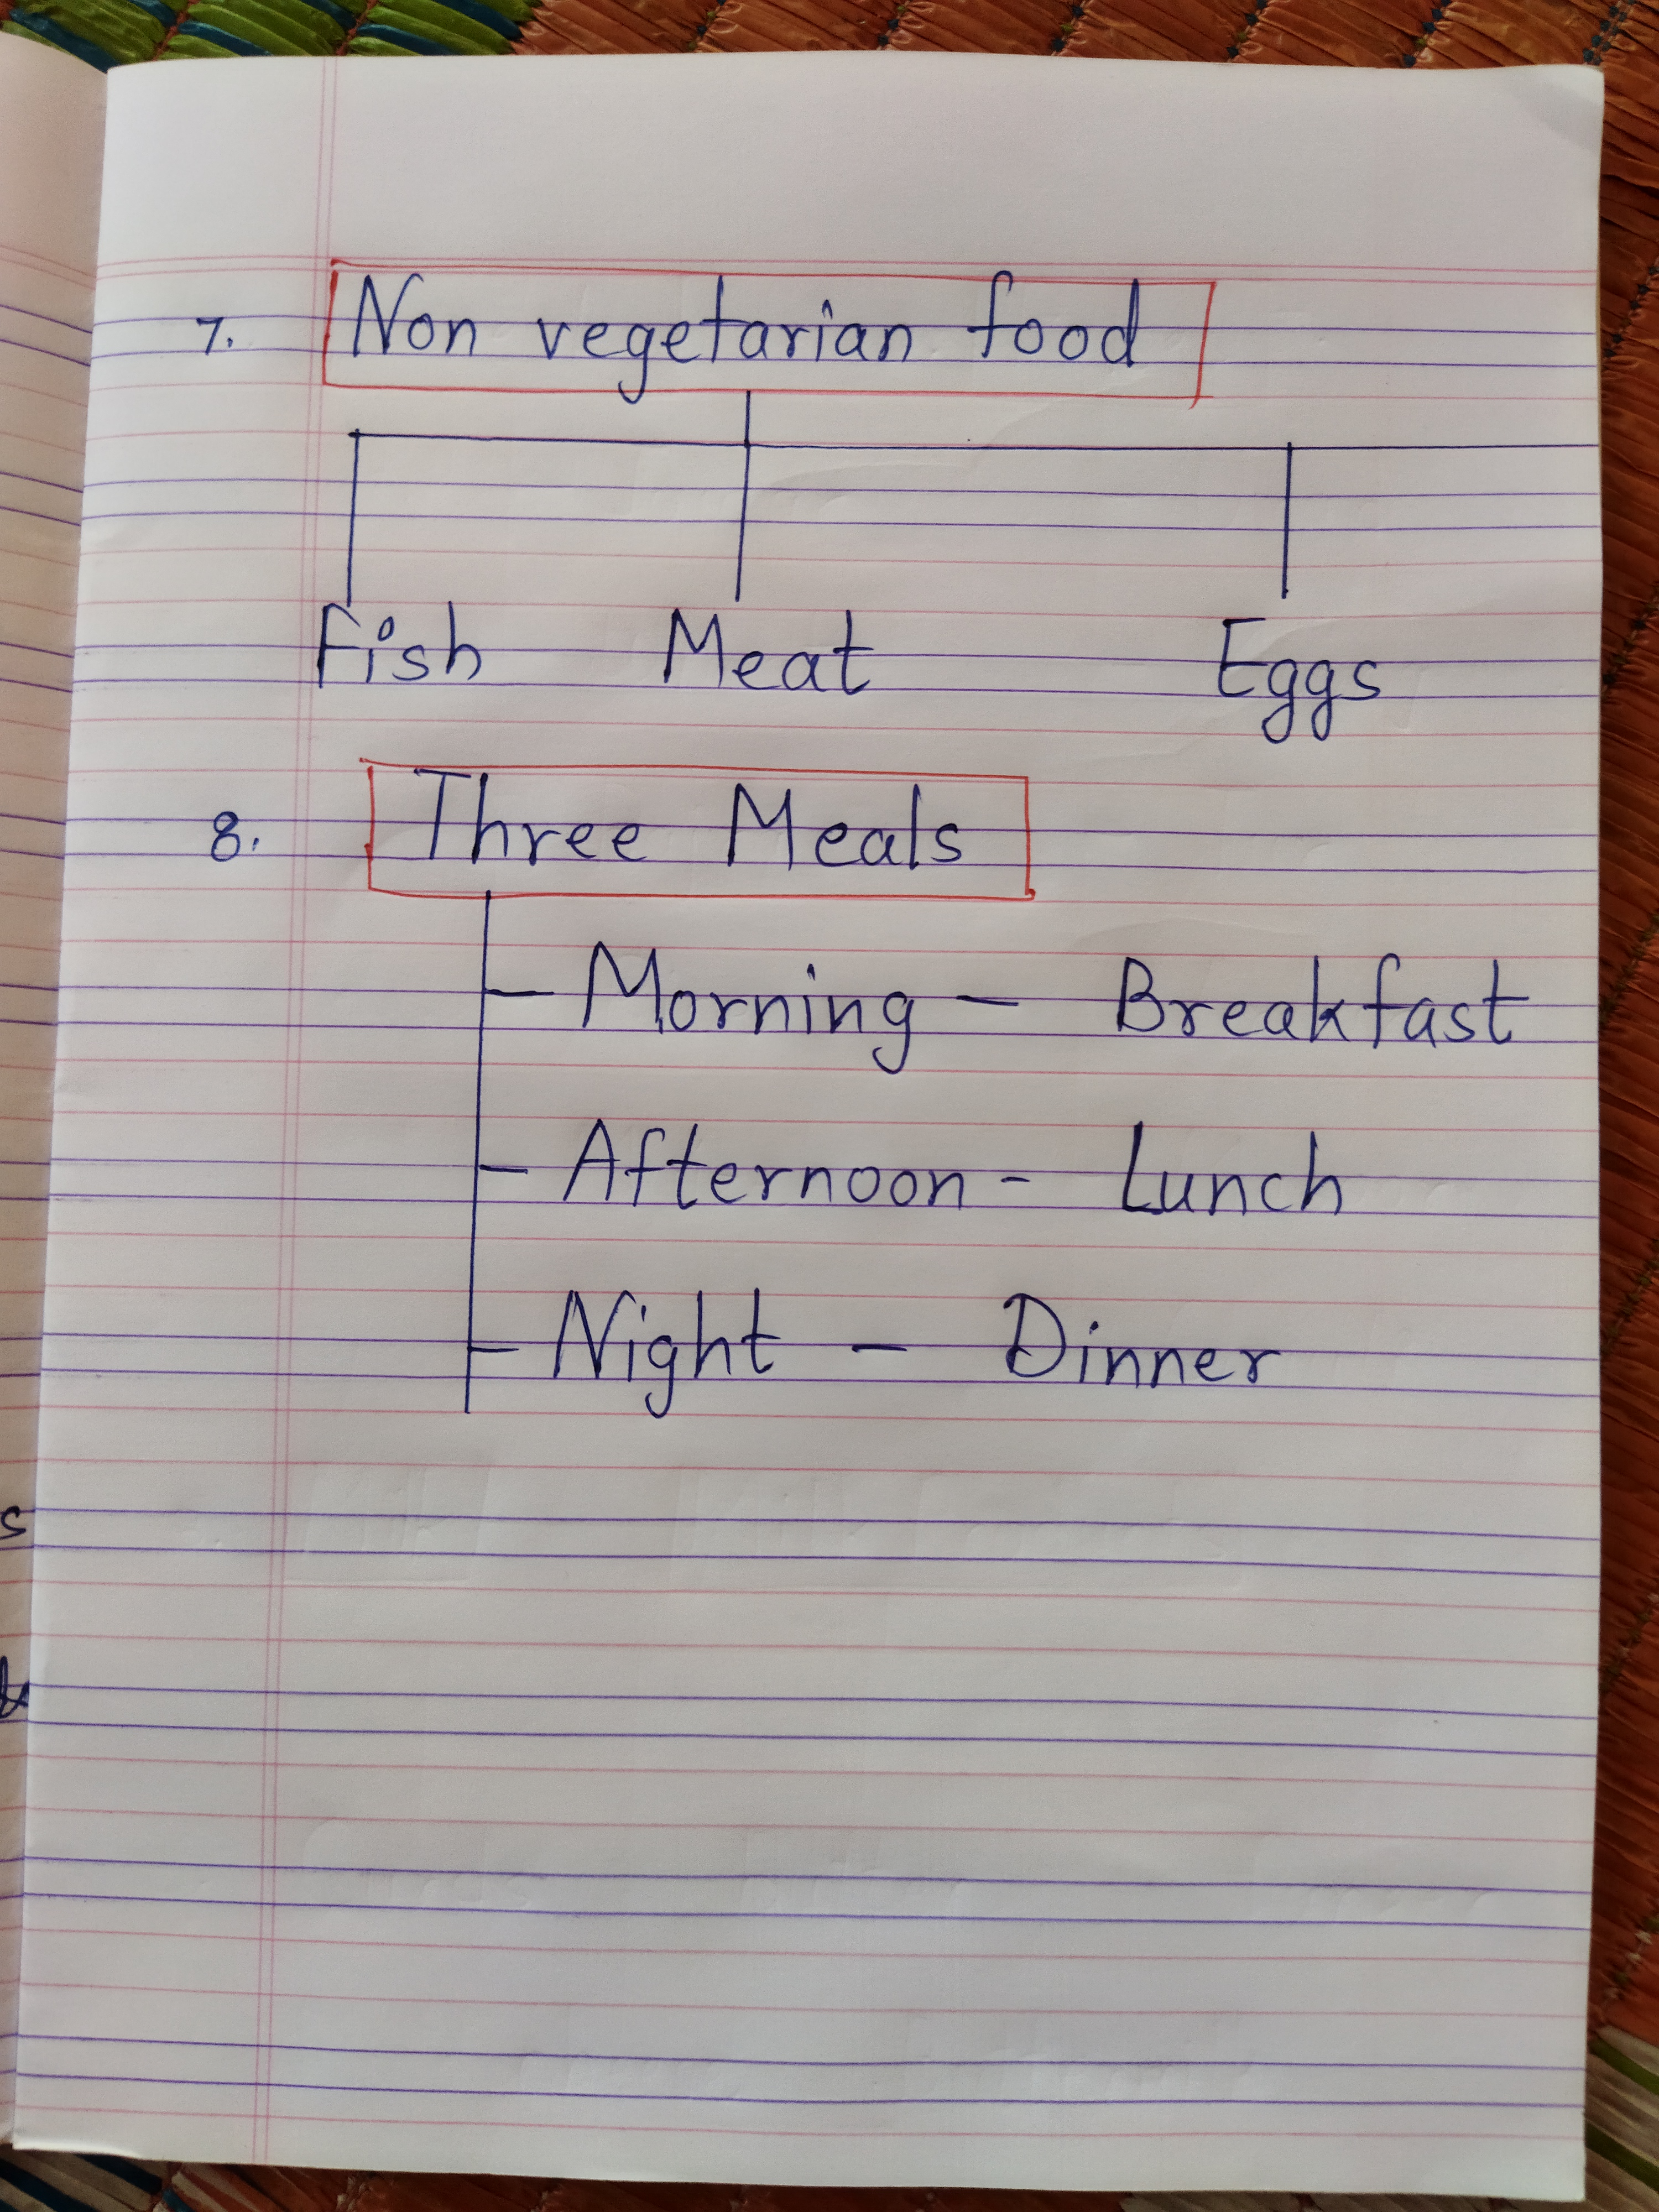 7. Non vegetarian food
Fish Meat Eggs
8. Three Meals
- Morning - Breakfast
- Afternoon - Lunch
- Night - Dinner